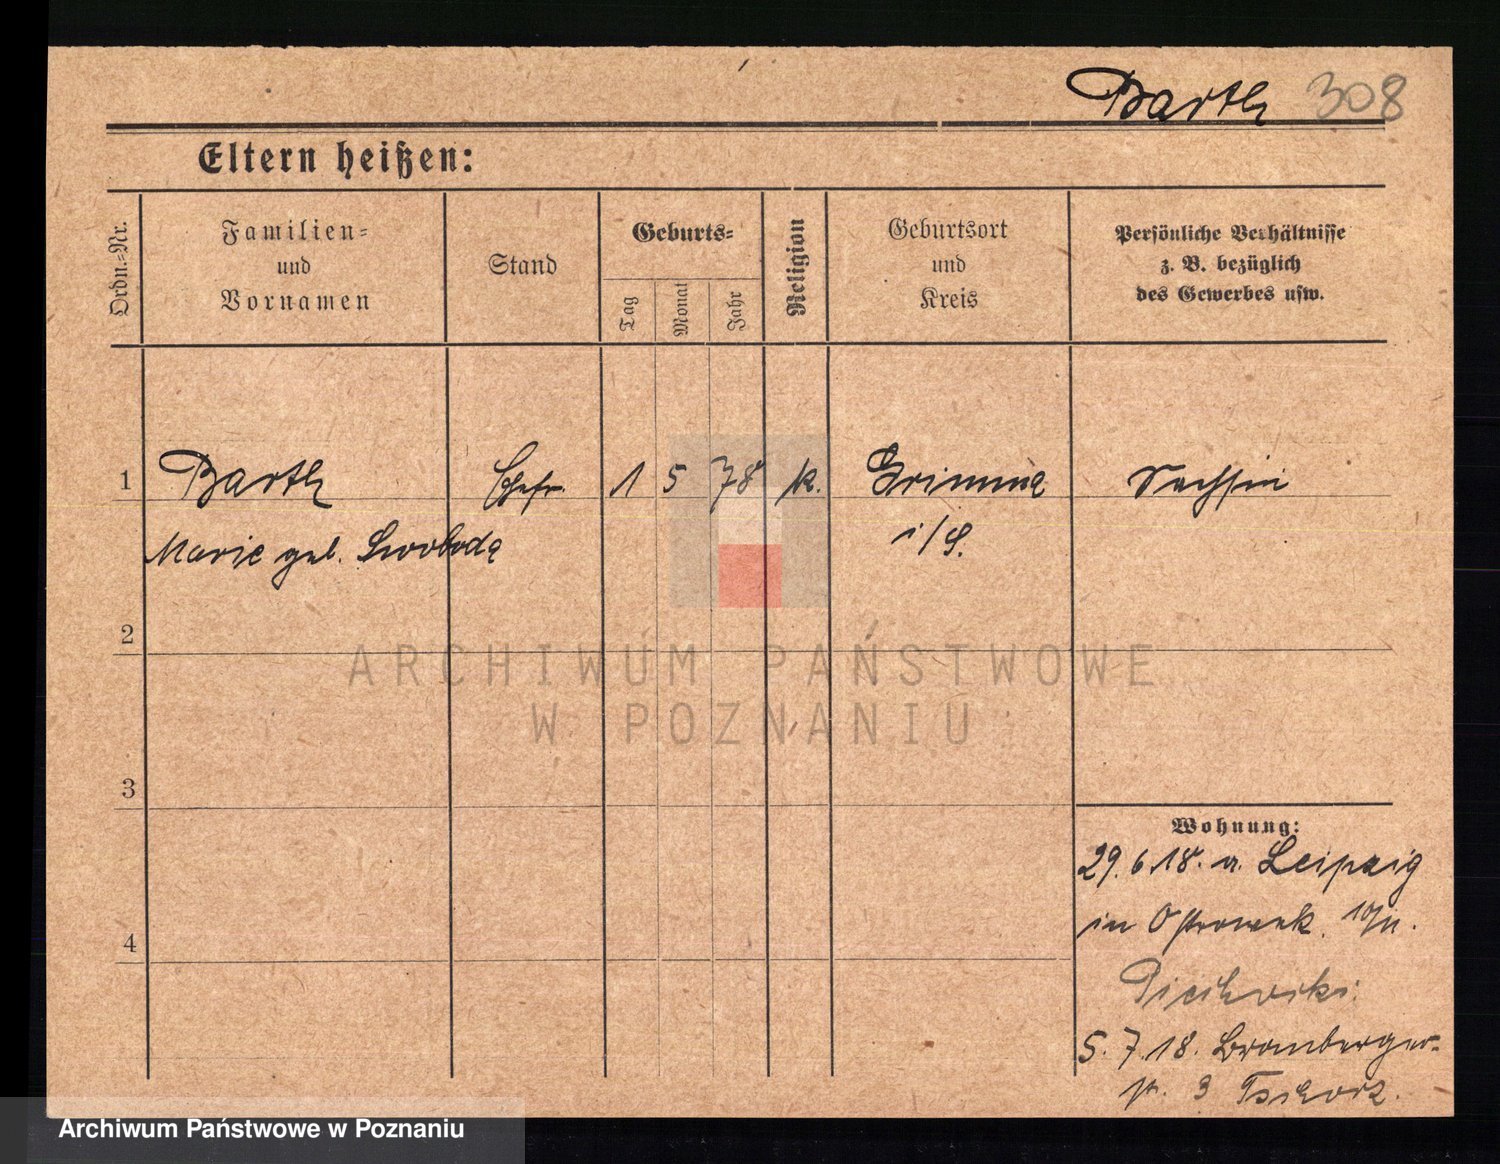 Barth 308
Eltern heißen:
Ordn.-Nr.
Familien-
und
Vornamen
Stand
Geburts-
Tag
Monat
Jahr
Religion
Geburtsort
und
Kreis
Persönliche Verhältnisse
z. B. bezüglich
des Gewerbes usw.
1 Barth Ehefr. 1 5 78 k. Grimma Sachsen
Marie geb. Swoboda i/S.
2
ARCHIWUM PAŃSTWOWE
W POZNANIU
3
Wohnung:
29.6.18. a. Leipzig
in Ostrowek 10/11.
4
5.7.18. Bromberger-
str. 3
Archiwum Państwowe w Poznaniu